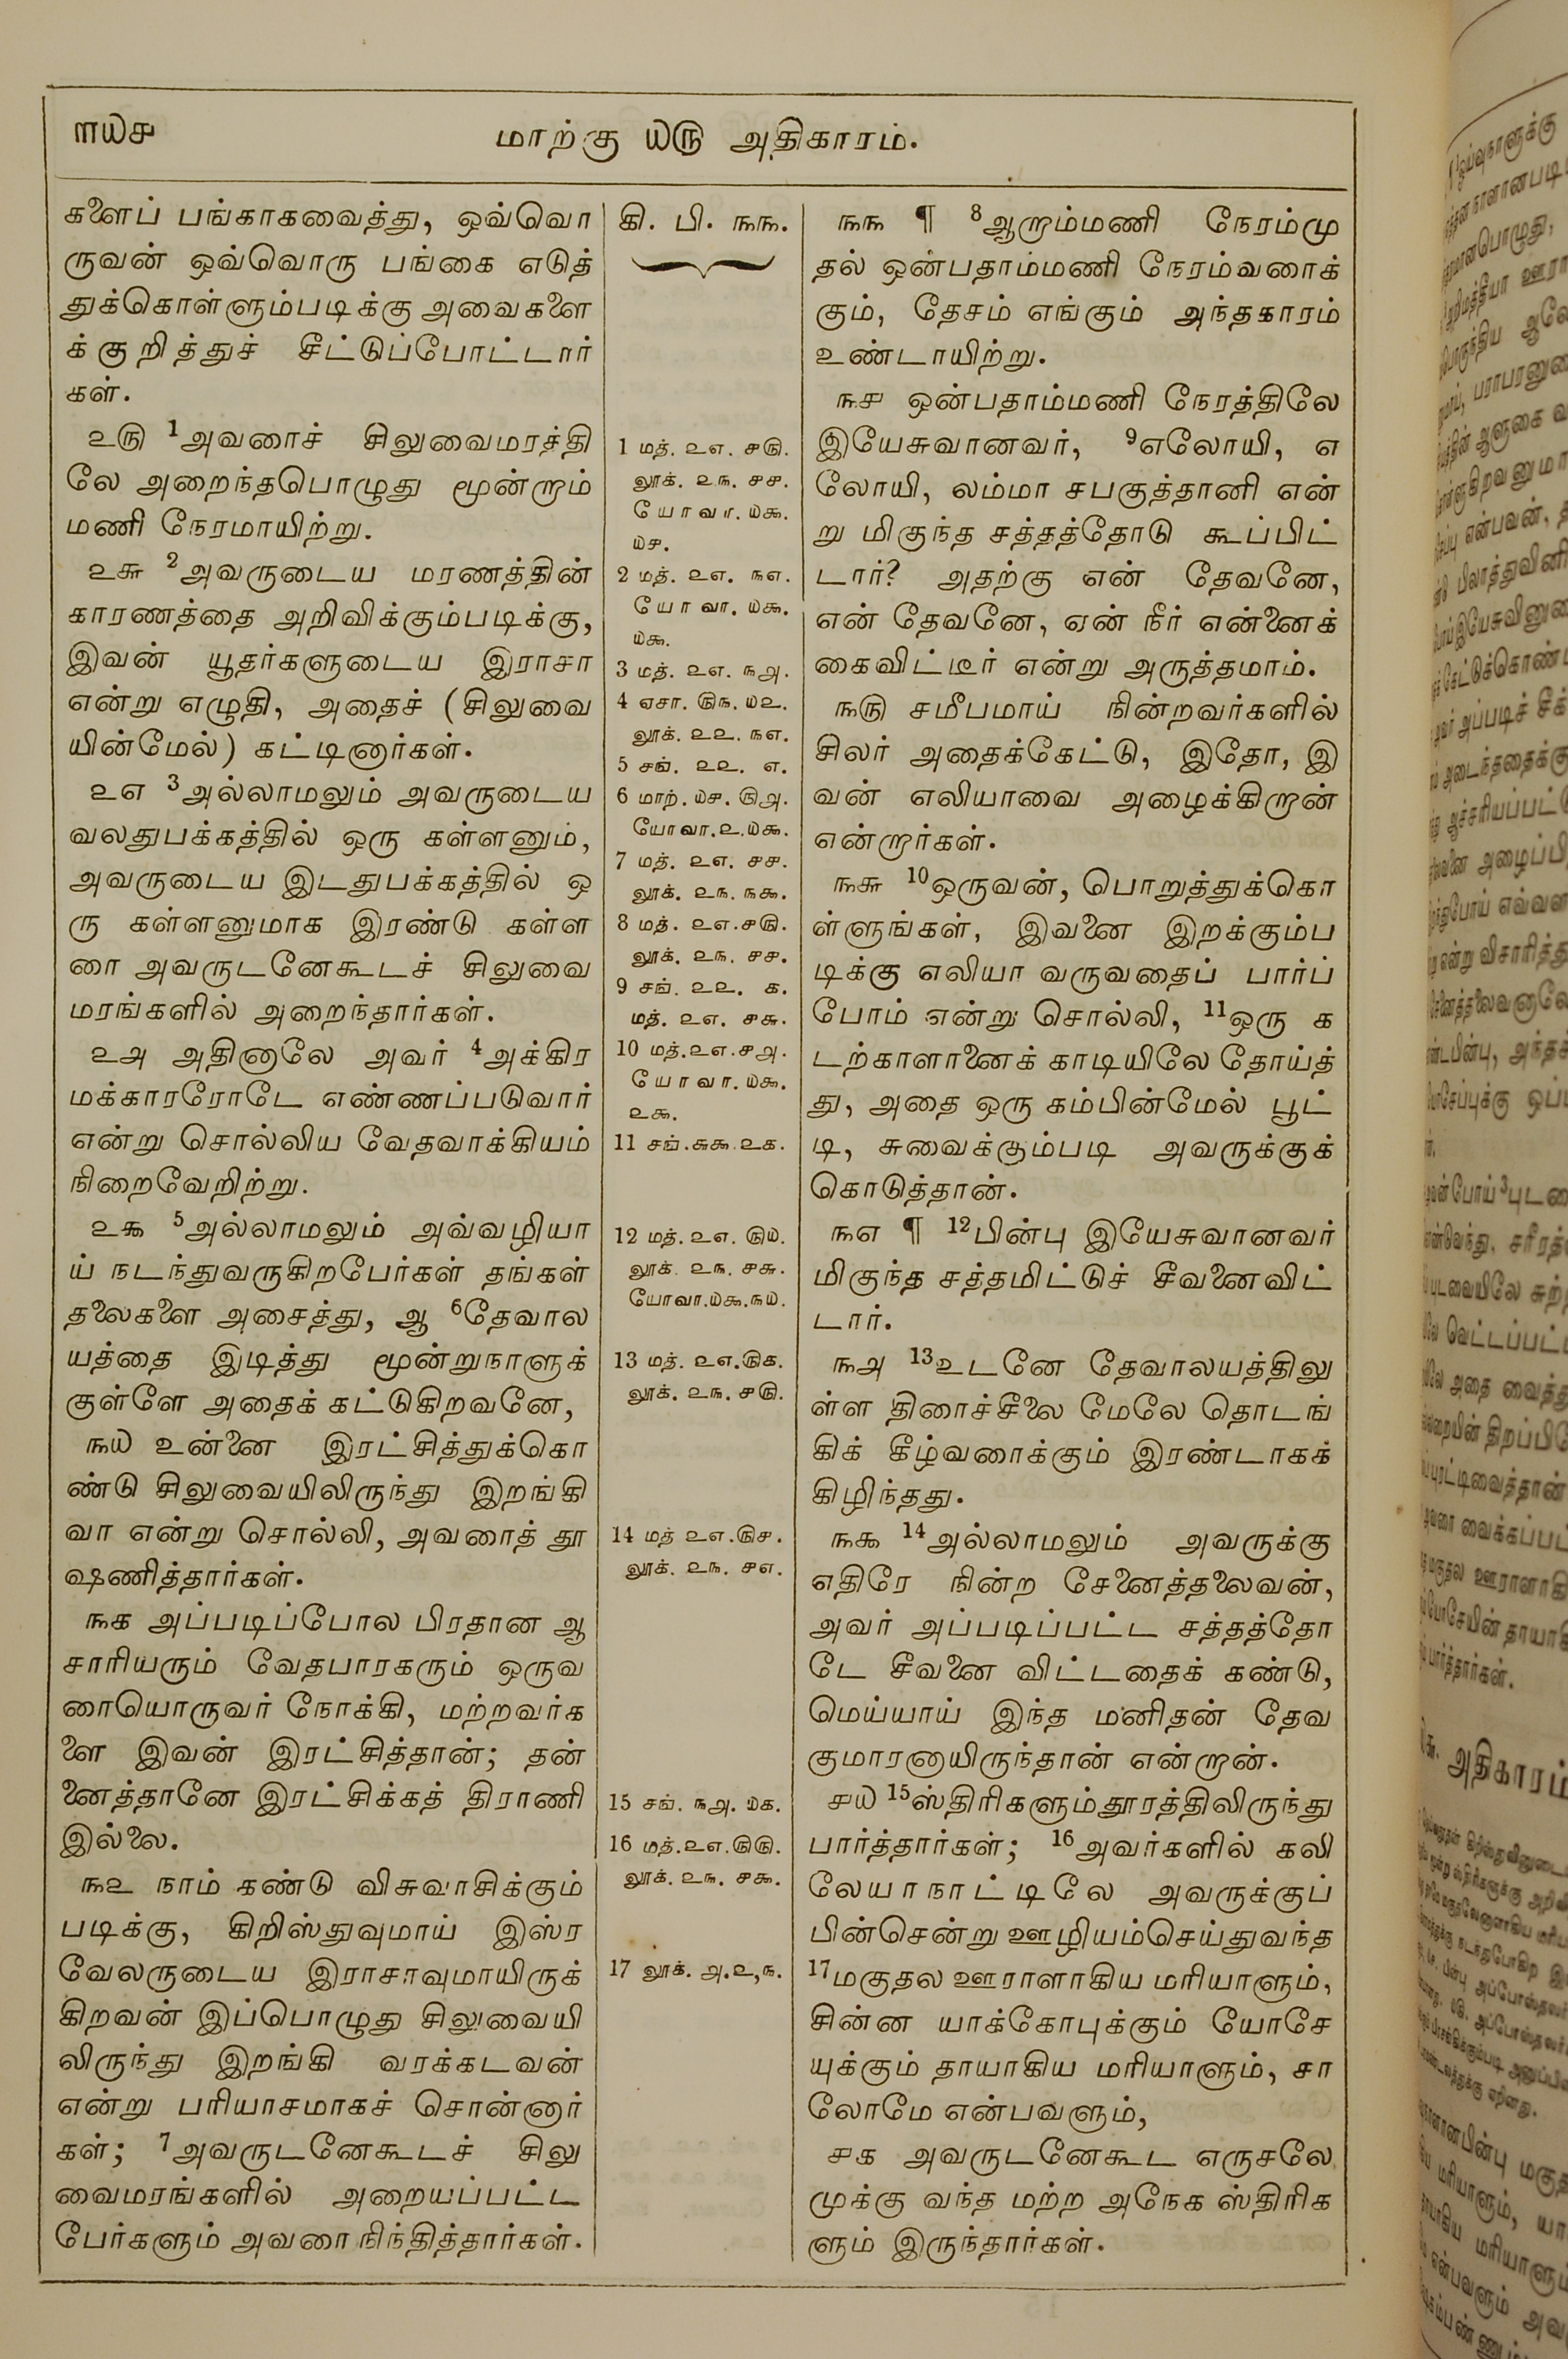 ௱௰௪
மாற்கு ௰௫ அதிகாரம்.
களைப் பங்காகவைத்து, ஒவ்வொ
ருவன் ஒவ்வொரு பங்கை எடுத்
துக்கொள்ளும்படிக்கு அவைகளை
க்குறித்துச் சீட்டுப்போட்டார்
கள்.
௨௫ 1அவரைச் சிலுவைமரத்தி
லே அறைந்தபொழுது மூன்றாம்
மணி நேரமாயிற்று.
௨௬ 2அவருடைய மரணத்தின்
காரணத்தை அறிவிக்கும்படிக்கு,
இவன் யூதர்களுடைய இராசா
என்று எழுதி, அதைச் (சிலுவை
யின்மேல்) கட்டினார்கள்.
௨௭ 3அல்லாமலும் அவருடைய
வலதுபக்கத்தில் ஒரு கள்ளனும்,
அவருடைய இடதுபக்கத்தில் ஒ
ரு கள்ளனுமாக இரண்டு கள்ள
ரை அவருடனேகூடச் சிலுவை
மரங்களில் அறைந்தார்கள்.
௨௮ அதினாலே அவர் 4அக்கிர
மக்காரரோடே எண்ணப்படுவார்
என்று சொல்லிய வேதவாக்கியம்
நிறைவேறிற்று.
௨௯ 5அல்லாமலும் அவ்வழியா
ய் நடந்துவருகிறபேர்கள் தங்கள்
தலைகளை அசைத்து, ஆ 6தேவால
யத்தை இடித்து மூன்றுநாளுக்
குள்ளே அதைக் கட்டுகிறவனே,
௩௰ உன்னை இரட்சித்துக்கொ
ண்டு சிலுவையிலிருந்து இறங்கி
வா என்று சொல்லி, அவரைத் தூ
ஷணித்தார்கள்.
௩௧ அப்படிப்போல பிரதான ஆ
சாரியரும் வேதபாரகரும் ஒருவ
ரையொருவர் நோக்கி, மற்றவர்க
ளை இவன் இரட்சித்தான்; தன்
னைத்தானே இரட்சிக்கத் திராணி
இல்லை.
௩௨ நாம் கண்டு விசுவாசிக்கும்
படிக்கு, கிறிஸ்துவுமாய் இஸ்ர
வேலருடைய இராசாவுமாயிருக்
கிறவன் இப்பொழுது சிலுவையி
லிருந்து இறங்கி வரக்கடவன்
என்று பரியாசமாகச் சொன்னார்
கள்; 7அவருடனேகூடச் சிலு
வைமரங்களில் அறையப்பட்ட
பேர்களும் அவரை நிந்தித்தார்கள்.
கி. பி. ௩௩.
1 மத். ௨௭. ௪௫.
லூக். ௨௩. ௪௪.
யோவா. ௰௯.
௰௪.
2 மத். ௨௭. ௩௭.
யோவா. ௰௯.
௰௯.
3 மத். ௨௭. ௩௮.
4 ஏசா. ௫௩. ௰௨.
லூக். ௨௨. ௩௭.
5 சங். ௨௨. ௭.
6 மாற். ௰௪. ௫௮.
யோவா.௨.௰௯.
7 மத். ௨௭. ௪௪.
லூக். ௨௩. ௩௯.
8 மத். ௨௭.௪௫.
லூக். ௨௩. ௪௪.
9 சங். ௨௨. ௧.
மத். ௨௭. ௪௬.
10 மத்.௨௭.௪௮.
யோவா. ௰௯.
௨௯.
11 சங்.௬௯.௨௧.
12 மத். ௨௭. ௫௰.
லூக். ௨௩. ௪௬.
யோவா.௰௯.௩௰.
13 மத். ௨௭.௫௧.
லூக். ௨௩. ௪௫.
14 மத் ௨௭.௫௪.
லூக். ௨௩. ௪௭.
15 சங். ௩௮. ௰௧.
16 மத்.௨௭.௫௫.
லூக். ௨௩. ௪௯.
17 லூக். ௮.௨,௩.
௩௩ ¶ 8ஆறாம்மணி நேரம்மு
தல் ஒன்பதாம்மணி நேரம்வரைக்
கும், தேசம் எங்கும் அந்தகாரம்
உண்டாயிற்று.
௩௪ ஒன்பதாம்மணி நேரத்திலே
இயேசுவானவர், 9எலோயி, எ
லோயி, லம்மா சபகுத்தானி என்
று மிகுந்த சத்தத்தோடு கூப்பிட்
டார்? அதற்கு என் தேவனே,
என் தேவனே, ஏன் நீர் என்னைக்
கைவிட்டீர் என்று அருத்தமாம்.
௩௫ சமீபமாய் நின்றவர்களில்
சிலர் அதைக்கேட்டு, இதோ, இ
வன் எலியாவை அழைக்கிறான்
என்றார்கள்.
௩௬ 10ஒருவன், பொறுத்துக்கொ
ள்ளுங்கள், இவனை இறக்கும்ப
டிக்கு எலியா வருவதைப் பார்ப்
போம் என்று சொல்லி, 11ஒரு க
டற்காளானைக் காடியிலே தோய்த்
து, அதை ஒரு கம்பின்மேல் பூட்
டி, சுவைக்கும்படி அவருக்குக்
கொடுத்தான்.
௩௭ ¶ 12பின்பு இயேசுவானவர்
மிகுந்த சத்தமிட்டுச் சீவனைவிட்
டார்.
௩௮ 13உடனே தேவாலயத்திலு
ள்ள திரைச்சீலை மேலே தொடங்
கிக் கீழ்வரைக்கும் இரண்டாகக்
கிழிந்தது.
௩௯ 14அல்லாமலும் அவருக்கு
எதிரே நின்ற சேனைத்தலைவன்,
அவர் அப்படிப்பட்ட சத்தத்தோ
டே சீவனை விட்டதைக் கண்டு,
மெய்யாய் இந்த மனிதன் தேவ
குமாரனாயிருந்தான் என்றான்.
௪௰ 15ஸ்திரிகளும்தூரத்திலிருந்து
பார்த்தார்கள்; 16அவர்களில் கலி
லேயாநாட்டிலே அவருக்குப்
பின்சென்று ஊழியம்செய்துவந்த
17மகுதல ஊராளாகிய மரியாளும்,
சின்ன யாக்கோபுக்கும் யோசே
யுக்கும் தாயாகிய மரியாளும், சா
லோமே என்பவளும்,
௪௧ அவருடனேகூட எருசலே
முக்கு வந்த மற்ற அநேக ஸ்திரிக
ளும் இருந்தார்கள்.
அதிகாரம்